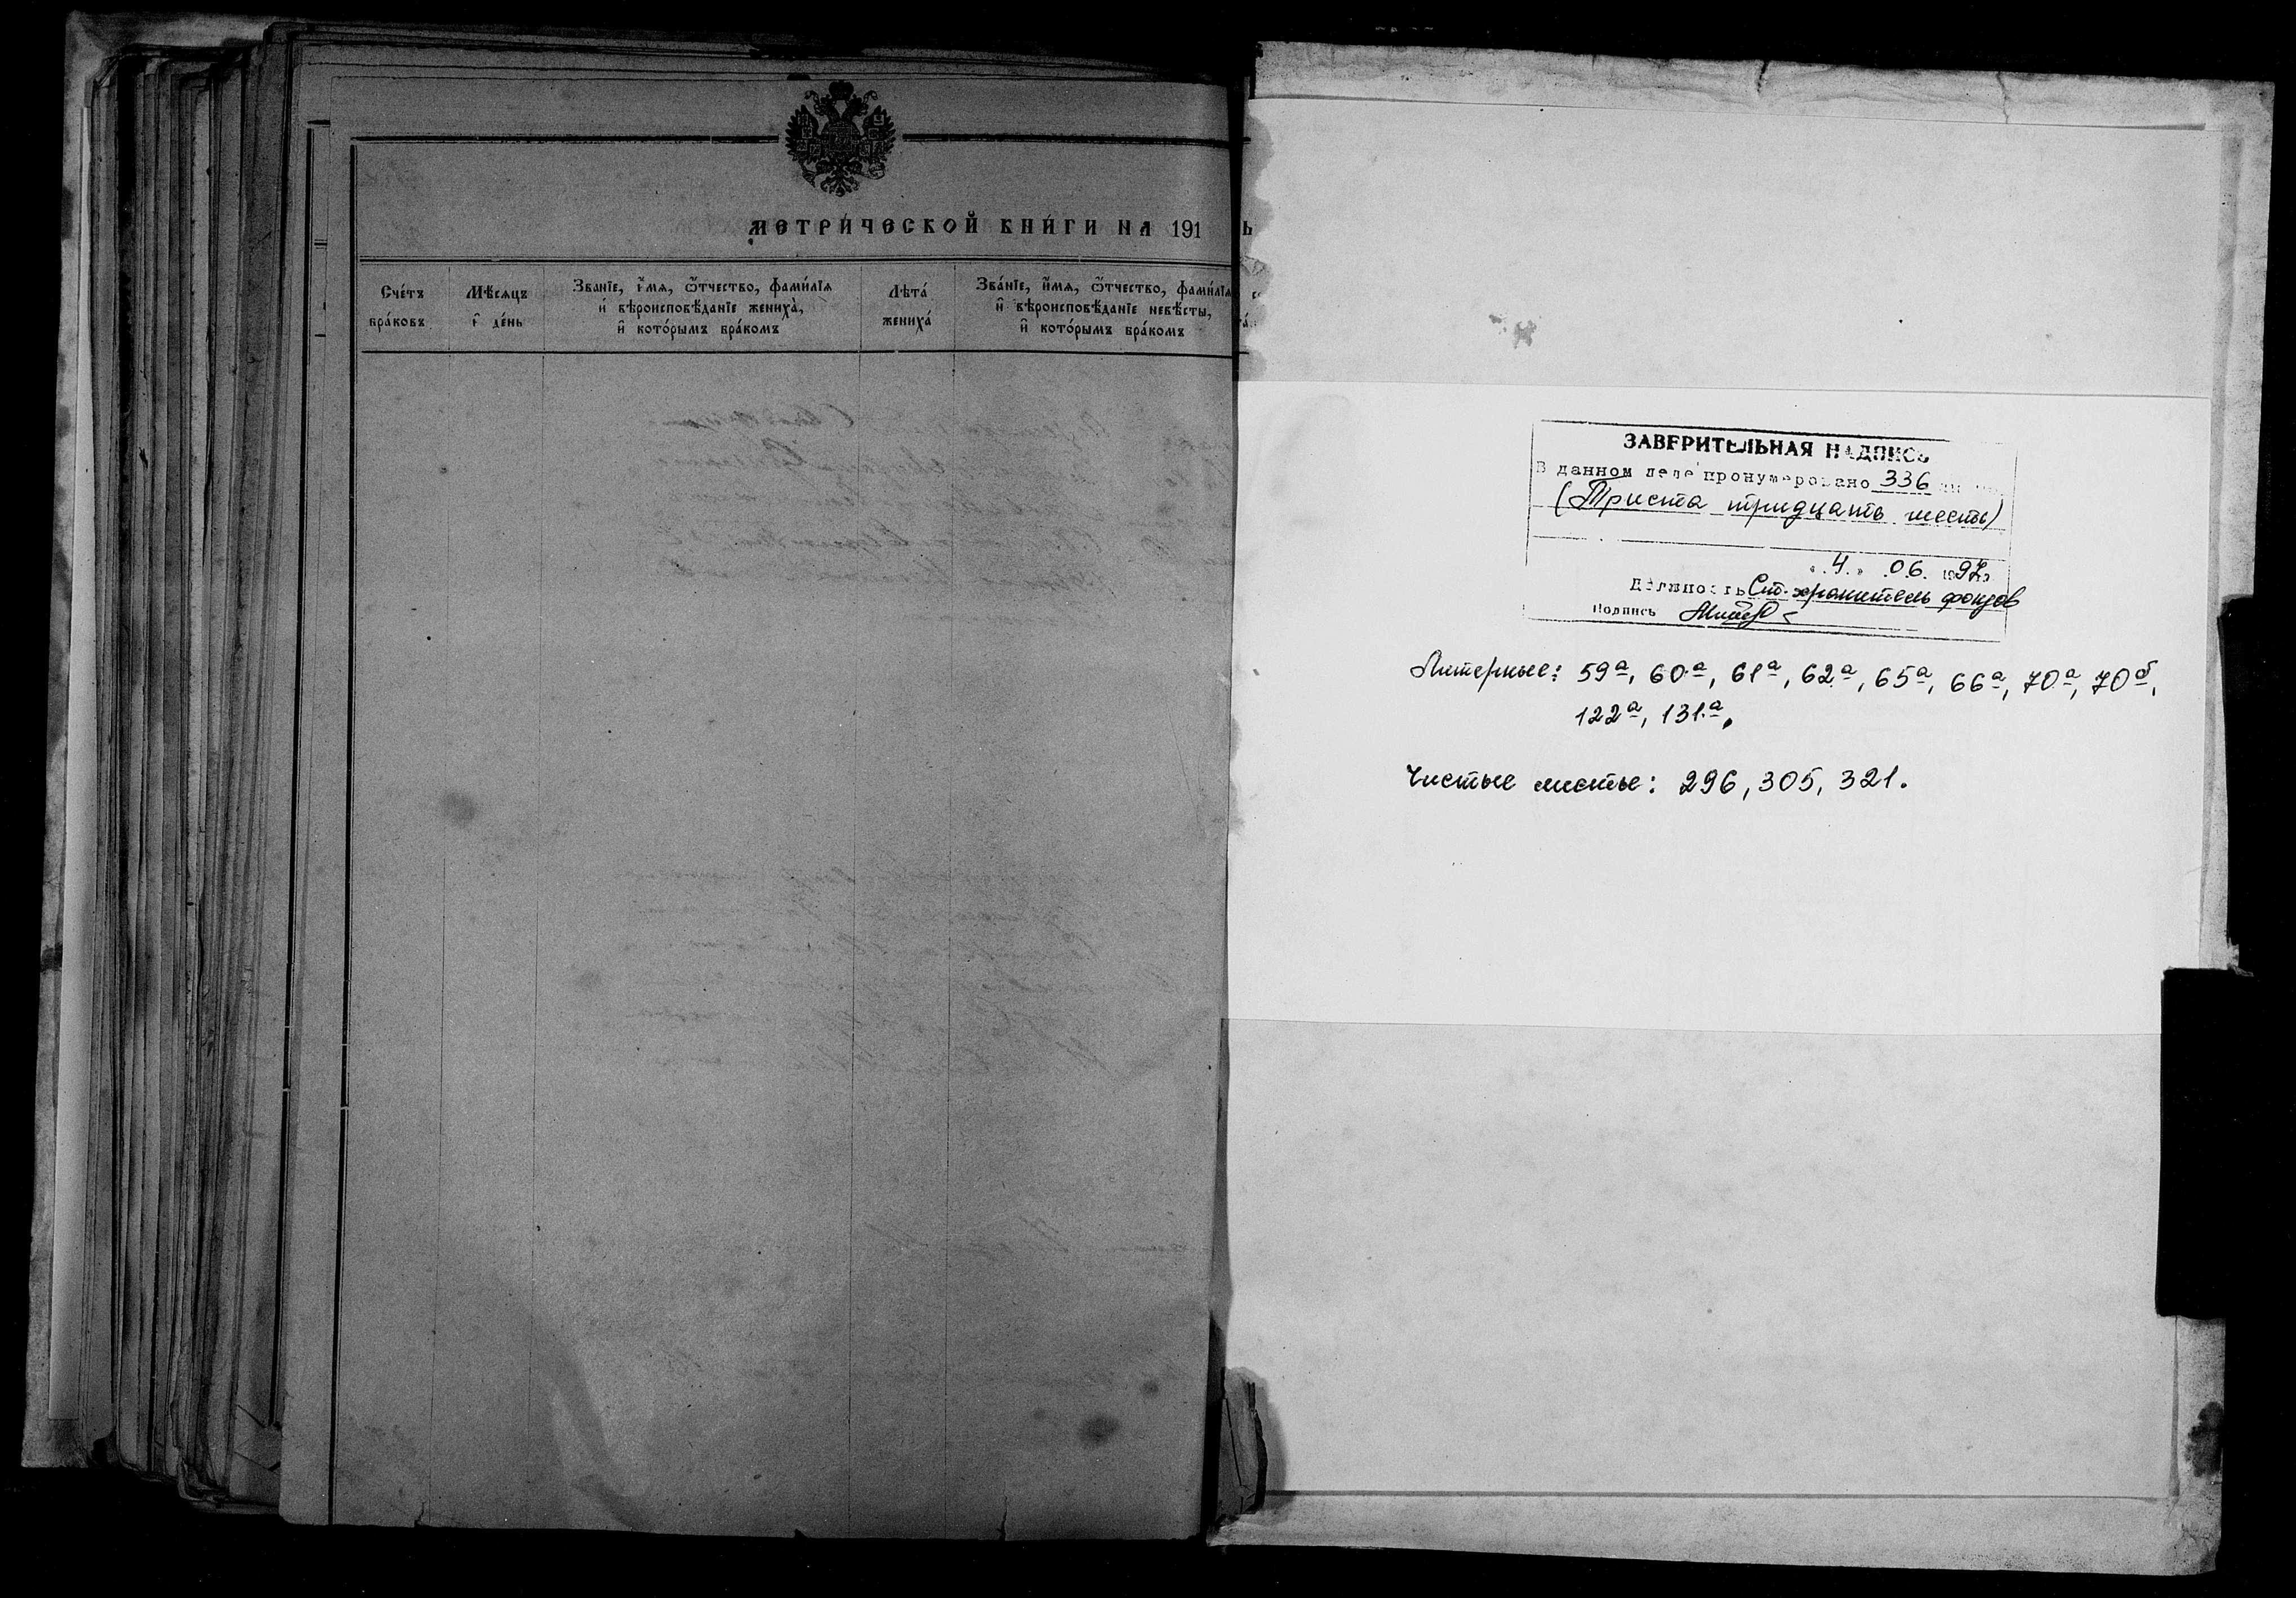 МЕТРИ́ЧЕСКОЙ КНИ́ГИ НА 191
Сче́тъ бра́ковъ
Мѣ́сяцъ и҆ де́нь
Зва́нїе, и҆́мѧ, ѻ҆́тчество, фами́лїѧ
и҆ вѣроисповѣ́данїе жениха̀,
и҆ кото́рымъ бра́комъ
Лѣта́ жениха́
Зва́нїе, и҆́мѧ, ѻ҆́тчество, фами́лїѧ
и҆ вѣроисповѣ́данїе невѣ́сты,
и҆ кото́рымъ бра́комъ
ЗАВЕРИТЕЛЬНАЯ НАДПИСЬ
В данном деле пронумеровано 336
(Триста тридцать шесть)
«4» 06. 1997
Должность Ст. хранитель фондов
Подпись
Литерные: 59а, 60а, 61а, 62а, 65а, 66а, 70а, 70б,
122а, 131а.
Чистые листы: 296, 305, 321.